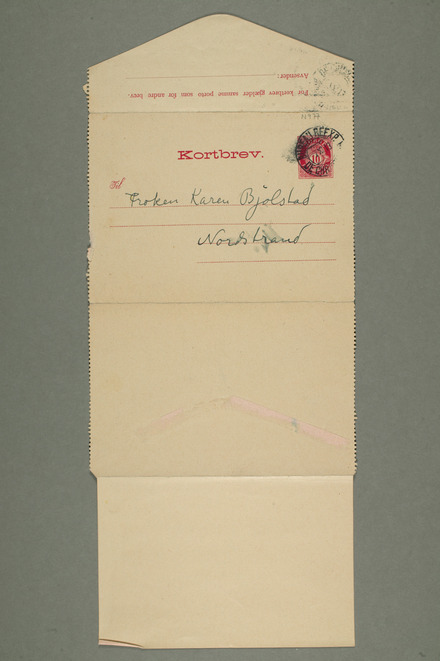 Afsender:
For kortbrev gjælder samme porto som for andre brev.
11977
Kortbrev.
10
Til
Frøken Karen Bjølstad
Nordstrand